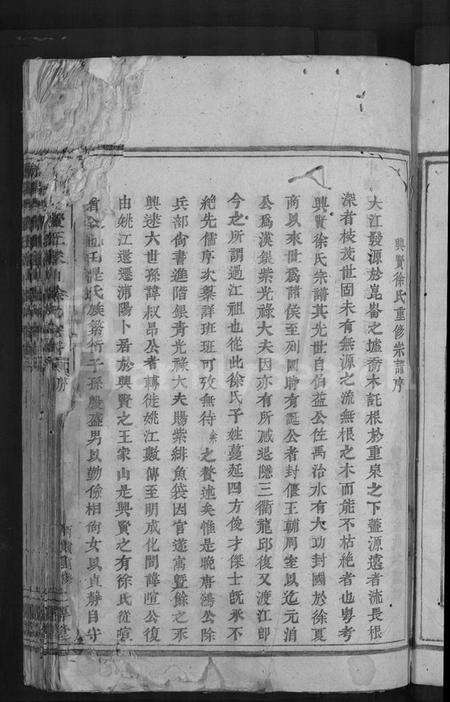 興賢徐氏重修宗譜序
大江發源於崑崙之墟喬木託根於重泉之下蓋源遠者流長根
深者枝茂世固未有無源之流無根之木而能不枯絕者也粵考
興賢徐氏宗譜其先世自伯益公佐禹治水有大功封國於徐夏
商以來世爲諸侯至列國時有誕公者封偃王輔周室以迄元洎
公爲漢銀紫光祿大夫因亦有所感退隱三衢龍邱復又渡江即
今之所謂過江祖也從此徐氏子姓蔓延四方俊才傑士旣承不
絕先儒序次槩詳班班可攷無待 余 之贅述矣惟是晚唐鴻公除
兵部尙書進階銀青光祿大夫賜紫緋魚袋因官遂寓暨餘之
興迷六世孫諱叔昂公者轉徙姚江數傳至明成化間諱瑄公復
由姚江遷暨浦陽卜居於興賢之王家山是興賢之有徐氏從瑄
氏族繁衍子孫 盛男以勤儉相尙女以貞靜自守
序